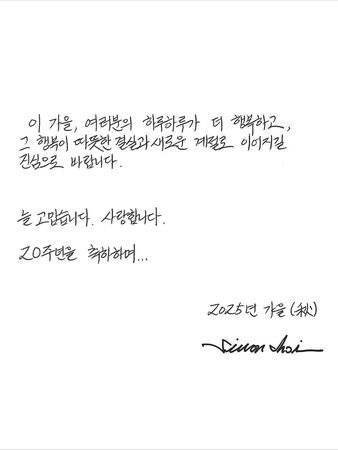 이 가을, 여러분의 하루하루가 더 행복하고,
그 행복이 따뜻한 결실과 새로운 계절로 이어지길
진심으로 바랍니다.
늘 고맙습니다. 사랑합니다.
20주년을 축하하며...
2025년 가을(秋)
Siwon Choi